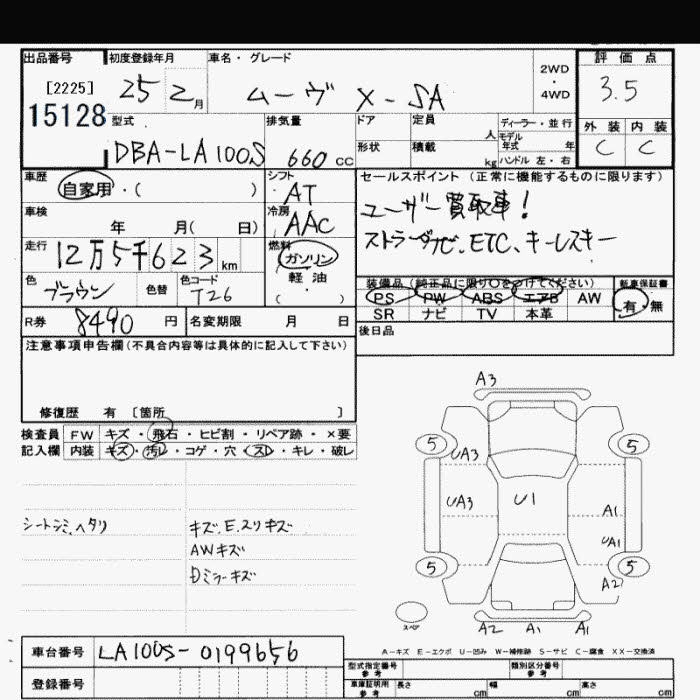 出品番号 初度登録年月 車名・グレード 評価点
[2225] 25 2月 ムーヴ X-SA 2WD・4WD 3.5
15128 型式 排気量 ドア 定員 人 ディーラー・並行 外装 内装
DBA-LA100S 660cc 形状 積載 kg モデル年式 年 ハンドル 左・右 C C
車歴 シフト セールスポイント (正常に機能するものに限ります)
自家用・( ) AT ユーザー買取車!
車検 冷房
年 月( 日) AAC ストラーダナビ、ETC、キーレスキー
走行 燃料
12万5千623km ガソリン
軽油
( )
色 色替 色コード 装備品(純正品に限り○をつけてください) 新車保証書
ブラウン T26 PS PW ABS エアB AW 有・無
R券 8490円 名変期限 月 日 SR ナビ TV 本革
注意事項申告欄(不具合内容等は具体的に記入して下さい) 後日品
修復歴 有 〔箇所 〕
検査員 FW キズ・飛石・ヒビ割・リペア跡・×要
記入欄 内装 キズ・汚レ・コゲ・穴・スレ・キレ・破レ
A3
5 5
UA3
UA3 U1 A1
UA1
5 5
A2
シートシミ、ヘタリ キズ、E、スリキズ
AWキズ
Dミラーキズ
スペア A2 A1 A1
A-キズ E-エクボ U-凹み W-補修跡 S-サビ C-腐食 XX-交換済
車台番号 LA100S-0199656 型式指定番号 参考 類別区分番号 参考
登録番号 車庫証明用 参考 長さ cm 幅 cm 高さ cm